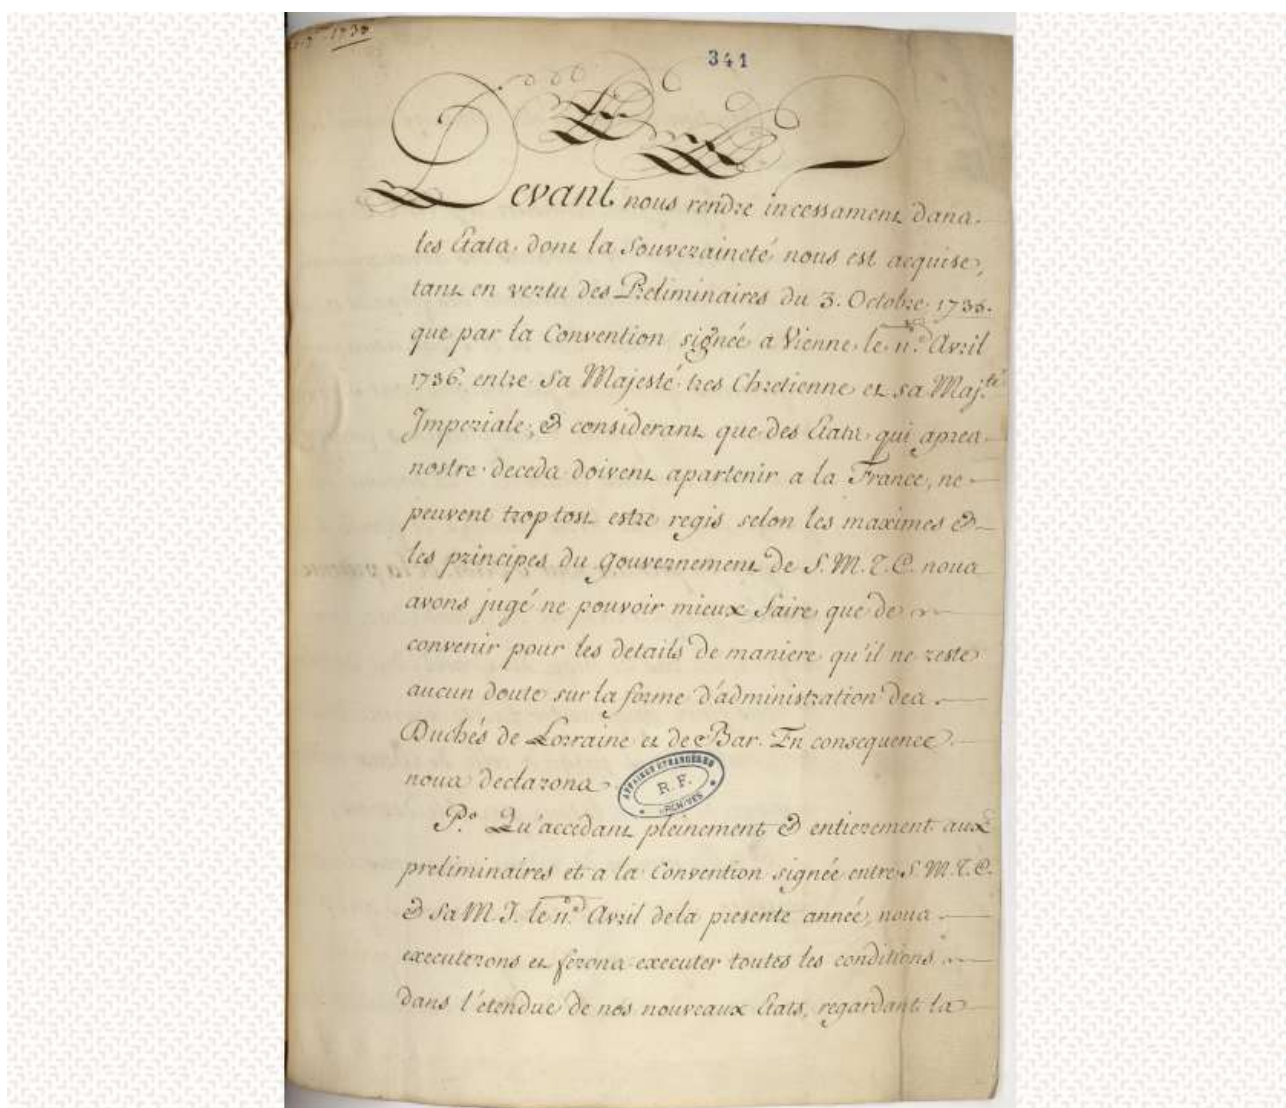 1736
341
Devant nous rendre incessament dans
les Etats dont la Souveraineté nous est acquise,
tant en vertu des Preliminaires du 3. Octobre 1735.
que par la Convention signée a Vienne le 11.e Avril
1736. entre Sa Majesté tres Chretienne et sa Maj.té
Imperiale, & considerant que des Etats qui apres
nostre deceds doivent apartenir a la France, ne
peuvent trop tost estre regis selon les maximes &
les principes du gouvernement de S. M. T. C. nous
avons jugé ne pouvoir mieux faire que de
convenir pour les details de maniere qu'il ne reste
aucun doute sur la forme d'administration des
Duchés de Lorraine et de Bar. En consequence
nous declarons
AFFAIRES ETRANGERES
R. F.
ARCHIVES
P.o Qu'accedant pleinement & entierement aux
preliminaires et a la Convention signée entre S. M. T. C.
& sa M. I. le 11.e Avril dela presente année, nous
executerons et ferons executer toutes les conditions
dans l'étendue de nos nouveaux Etats, regardant la